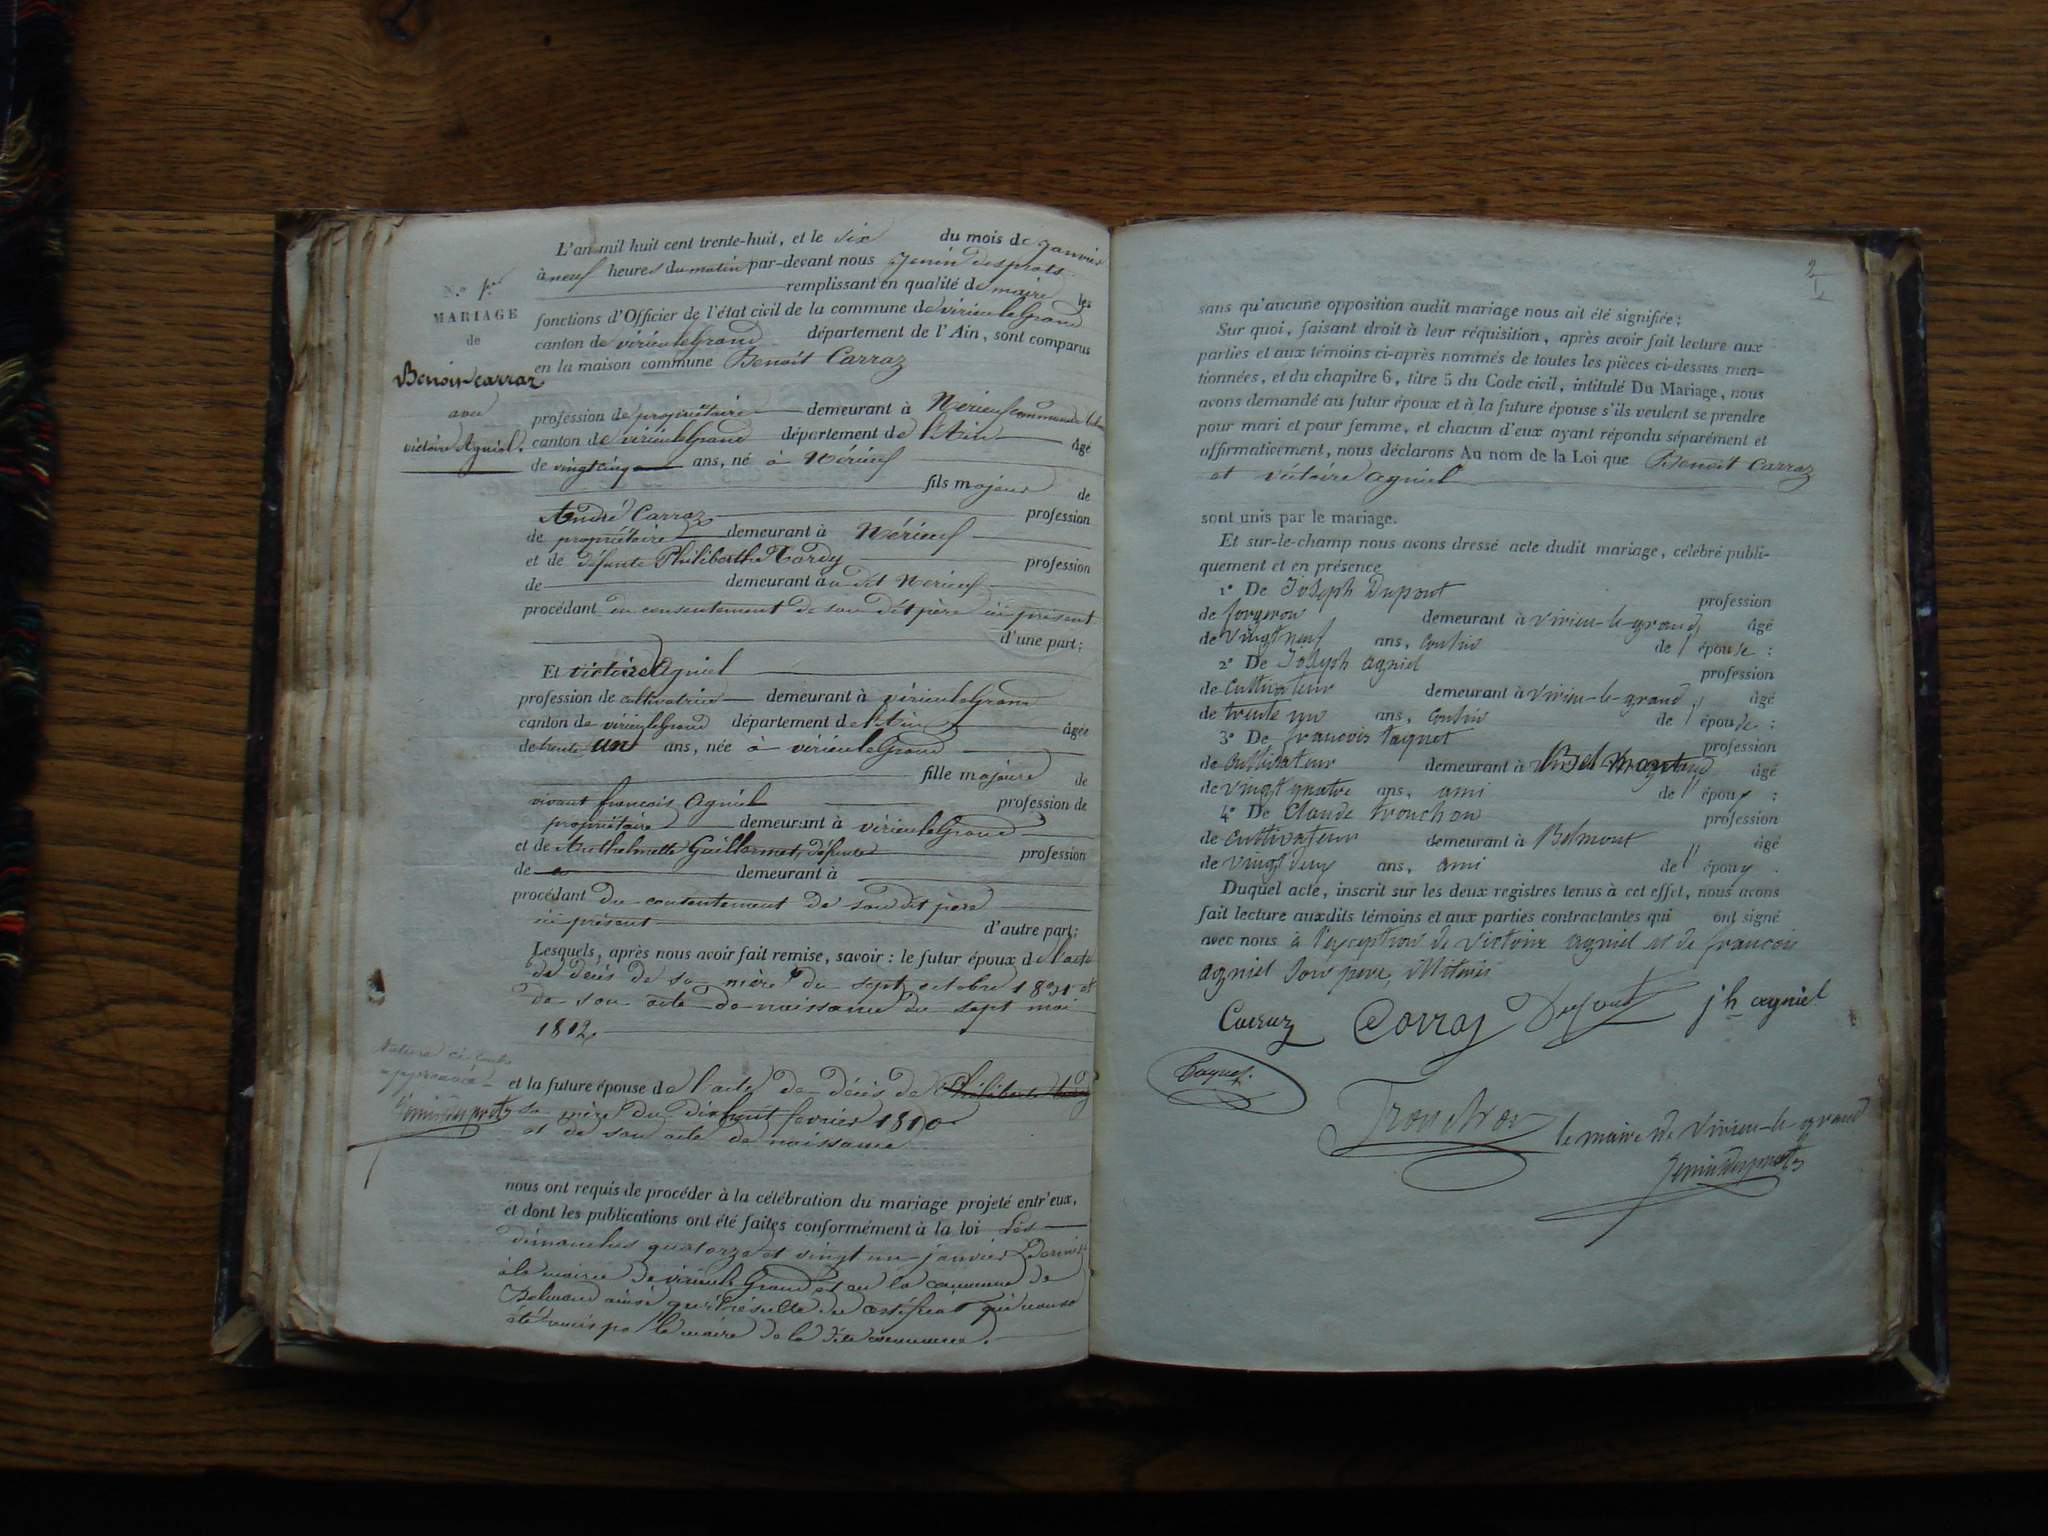 N.º 1.er
MARIAGE
de
Benoit Carraz
avec
victoire Agniel.
L'an mil huit cent trente-huit, et le six du mois de janvier
à neuf heures du matin par-devant nous Jenin desprots
remplissant en qualité de maire les
fonctions d'Officier de l'état civil de la commune de virieu le Grand
canton de virieu le Grand département de l'Ain, sont comparus
en la maison commune Benoit Carraz
profession de propriétaire demeurant à Nérieuf commune de
canton de virieu le Grand département de l'Ain âgé
de vingt cinq ans, né à Nérieuf
fils majeur de
André Carraz profession
de propriétaire demeurant à Nérieuf
et de défunte Philiberthe Tardy profession
de demeurant au dit Nérieuf
procédant du consentement de son dit père ici présent
d'une part;
Et victoire Agniel
profession de cultivatrice demeurant à virieu le Grand
canton de virieu le Grand département de l'Ain âgée
de trente un ans, née à virieu le Grand
fille majeure de
vivant francois Agniel profession de
propriétaire demeurant à virieu le Grand
et de Anthelmette Guillermet, défunte profession
de demeurant à
procédant du consentement de son dit père
ici présent d'autre part;
Lesquels, après nous avoir fait remise, savoir: le futur époux de l'acte
de décès de sa mère du sept octobre 1831 et
de son acte de naissance du sept mai
1812.
et la future épouse de l'acte de décès de Philiberte tardy
sa mère du dix huit fevrier 1810
et de son acte de naissance
Jenin desprots
nous ont requis de procéder à la célébration du mariage projeté entr'eux,
et dont les publications ont été faites conformément à la loi les
dimanches quatorze et vingt un janvier dernier
à la mairie de virieu le Grand et en la commune de
Belmond ainsi qu'il résulte du certificat qui nous a
été remis par le maire de la dite commune.
2
sans qu'aucune opposition audit mariage nous ait été signifiée;
Sur quoi, faisant droit à leur réquisition, après avoir fait lecture aux
parties et aux témoins ci-après nommés de toutes les pièces ci-dessus men-
tionnées, et du chapitre 6, titre 5 du Code civil, intitulé Du Mariage, nous
avons demandé au futur époux et à la future épouse s'ils veulent se prendre
pour mari et pour femme, et chacun d'eux ayant répondu séparément et
affirmativement, nous déclarons Au nom de la Loi que Benoit Carraz
et victoire Agniel
sont unis par le mariage.
Et sur-le-champ nous avons dressé acte dudit mariage, célébré publi-
quement et en présence
1° De Joseph Dupont profession
de forgeron demeurant à virieu-le-grand, âgé
de vingt neuf ans, cousin de l'épouse;
2° De Joseph agniel profession
de cultivateur demeurant à virieu-le-grand, âgé
de trente un ans, cousin de l'épouse;
3° De francois taquet profession
de cultivateur demeurant à âgé
de vingt quatre ans, ami de l'époux;
4° De Claude trouchon profession
de cultivateur demeurant à Belmont âgé
de vingt deux ans, ami de l'époux.
Duquel acte, inscrit sur les deux registres tenus à cet effet, nous avons
fait lecture auxdits témoins et aux parties contractantes qui ont signé
avec nous à l'exception de victoire agniel et de francois
agniel son pere, illiterés
Carraz Carraz Dupont j.h agniel
Taquet
Trouchon le maire de virieu-le-grand
Jenin desprots